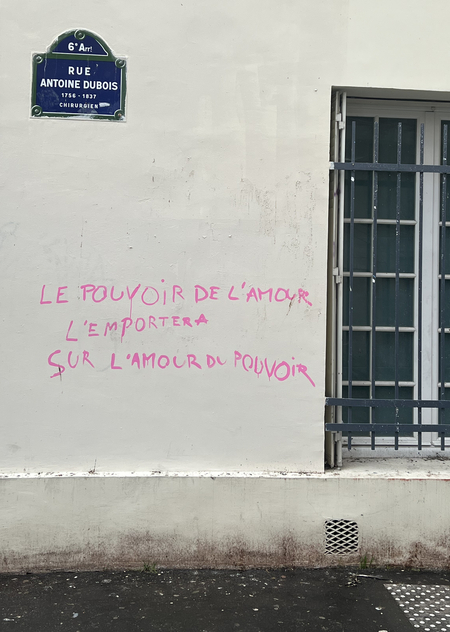 6ᵉ Arrᵗ
RUE
ANTOINE DUBOIS
1756 - 1837
CHIRURGIEN
LE POUVOIR DE L'AMOUR
L'EMPORTERA
SUR L'AMOUR DU POUVOIR